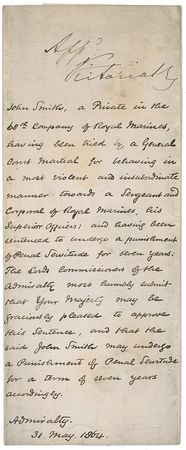 Appd.
Victoria R
John Smith, a Private in the
60th Company of Royal Marines,
having been tried by a General
Court Martial for behaving in
a most violent and insubordinate
manner towards a Sergeant and
Corporal of Royal Marines, his
Superior Officers; and having been
sentenced to undergo a punishment
of Penal Servitude for seven years;
The Lords Commissioners of the
Admiralty most humbly submit
that Your Majesty may be
graciously pleased to approve
this Sentence, and that the
said John Smith may undergo
a Punishment of Penal Servitude
for a term of seven years
accordingly.
Admiralty.
31 May. 1864.